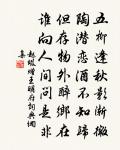 五柳逢秋影渐微
陶潜恋酒不知归
但存物外醉乡在
谁向人间问是非
赵嘏赠王明府词典网
集